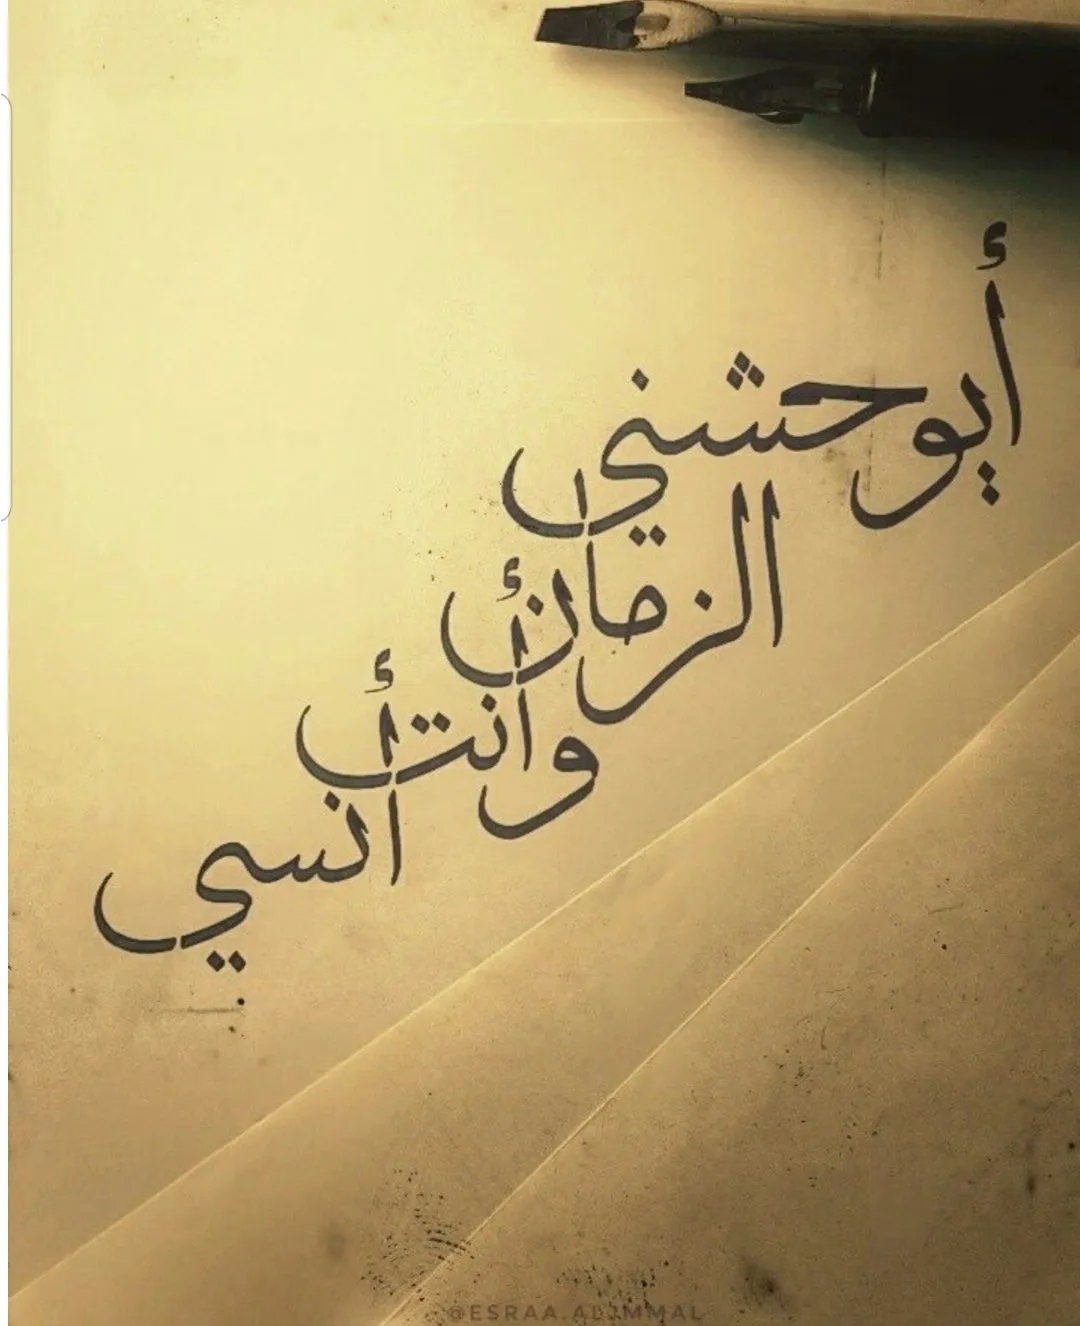 أيوحشني
الزمان
وأنت
أنسي
@ESRAA.ALJMMAL